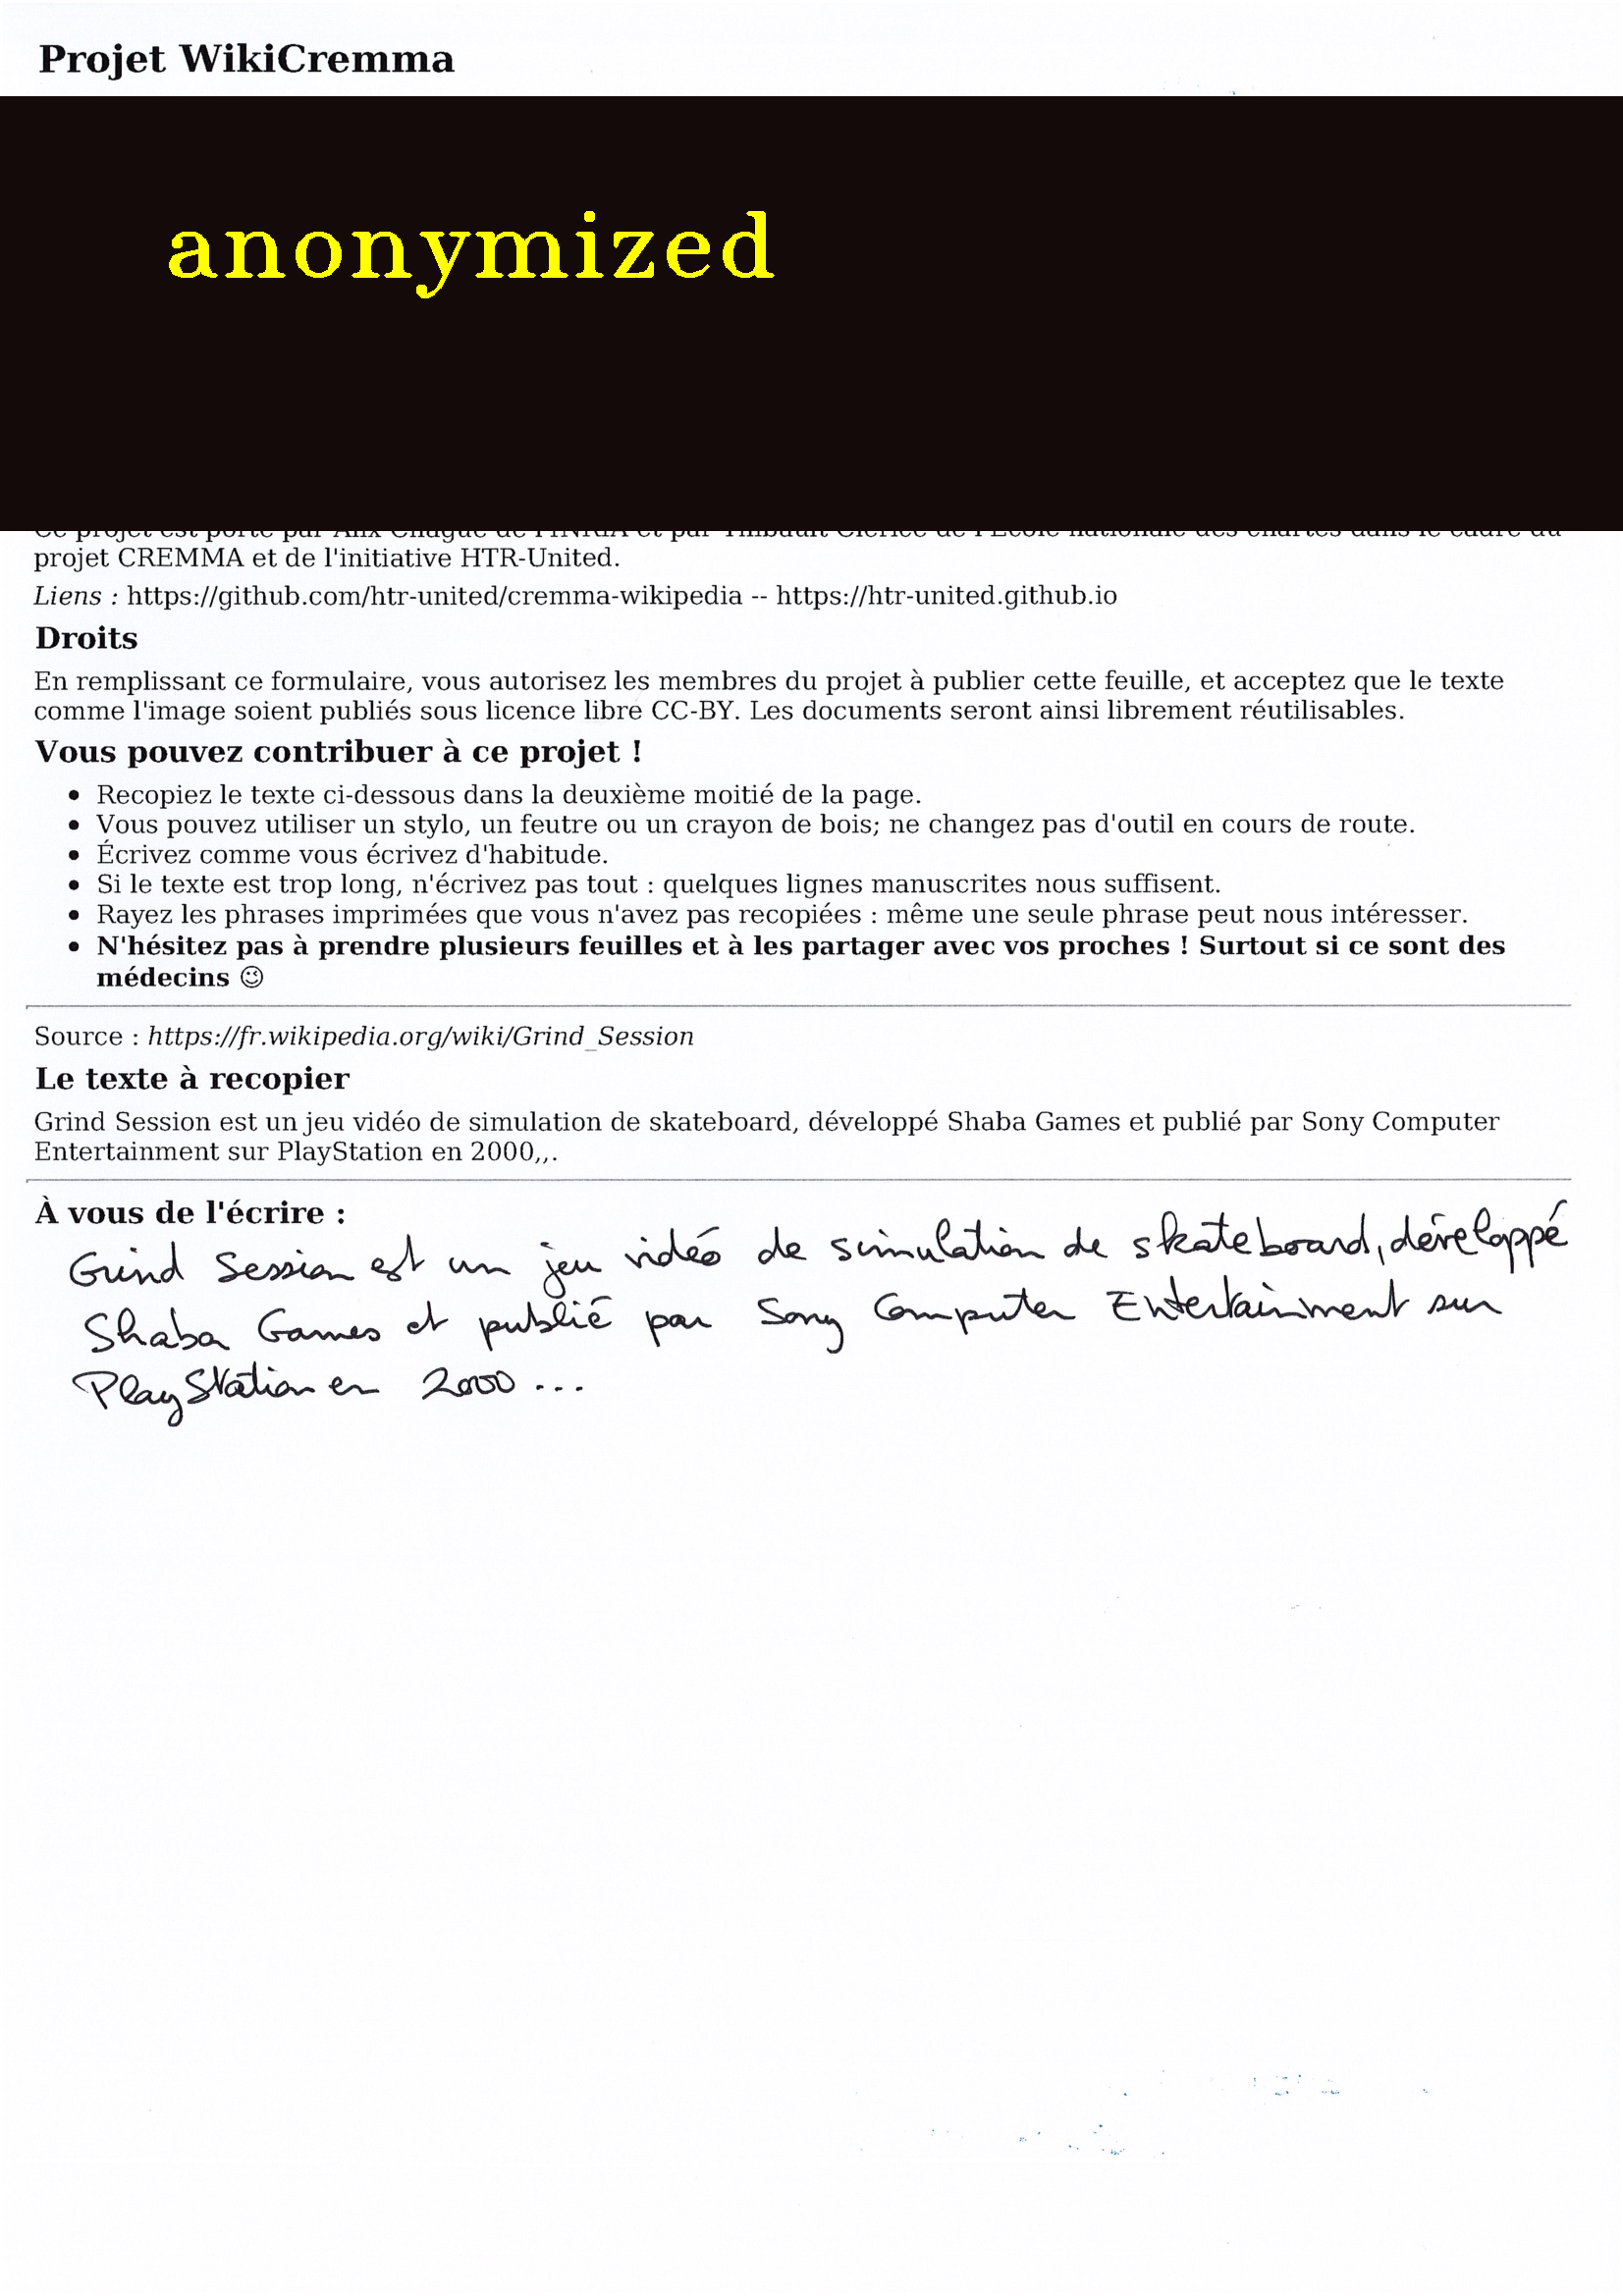 Projet WikiCremma
anonymized
projet CREMMA et de l'initiative HTR-United.
Liens : https://github.com/htr-united/cremma-wikipedia -- https://htr-united.github.io
Droits
En remplissant ce formulaire, vous autorisez les membres du projet à publier cette feuille, et acceptez que le texte
comme l'image soient publiés sous licence libre CC-BY. Les documents seront ainsi librement réutilisables.
Vous pouvez contribuer à ce projet !
• Recopiez le texte ci-dessous dans la deuxième moitié de la page.
• Vous pouvez utiliser un stylo, un feutre ou un crayon de bois; ne changez pas d'outil en cours de route.
• Écrivez comme vous écrivez d'habitude.
• Si le texte est trop long, n'écrivez pas tout : quelques lignes manuscrites nous suffisent.
• Rayez les phrases imprimées que vous n'avez pas recopiées : même une seule phrase peut nous intéresser.
• N'hésitez pas à prendre plusieurs feuilles et à les partager avec vos proches ! Surtout si ce sont des
médecins 😉
Source : https://fr.wikipedia.org/wiki/Grind_Session
Le texte à recopier
Grind Session est un jeu vidéo de simulation de skateboard, développé Shaba Games et publié par Sony Computer
Entertainment sur PlayStation en 2000,,.
À vous de l'écrire :
Grind Session est un jeu vidéo de simulation de skateboard, développé
Shaba Games et publié par Sony Computer Entertainment sur
PlayStation en 2000...